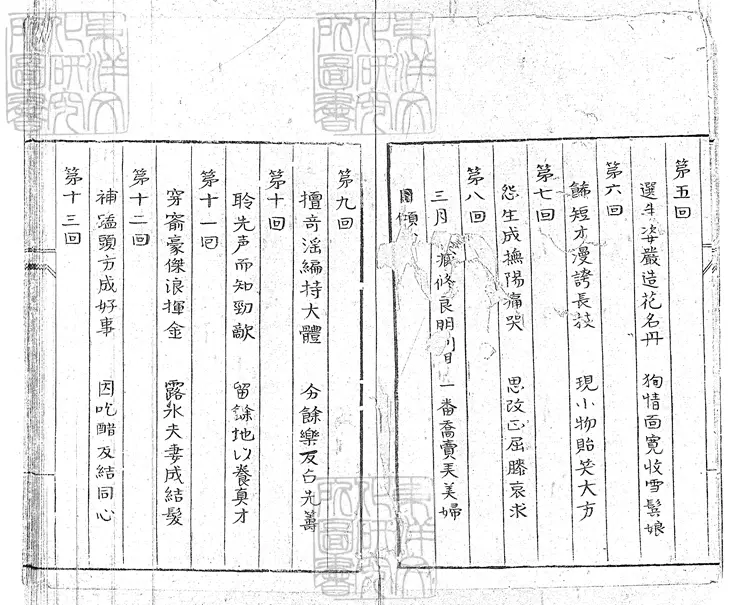 第五回
選手姿嚴造花名冊　狥情面寬收雪鬂娘
第六回
飾短才漫誇長技　現小物貽笑大方
第七回
怨生成撫陽痛哭　思改正屈膝哀求
第八回
三月修良明一番喬賣弄美婦
傾
第九回
擅奇淫編持大體　分餘樂反占先籌
第十回
聆先声而知勁敵　留餘地以養真才
第十一回
穿窬豪傑浪揮金　露水夫妻成結髮
第十二回
補磕頭方成好事　因吃醋反結同心
第十三回